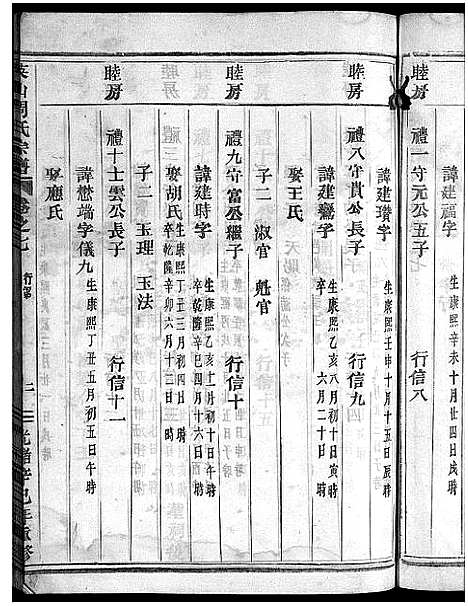 生康熙辛未十月廿四日戌時
睦房
禮一守元公五子
行信八
諱建瓚字
生康熙壬申十月十五日辰時
睦房
禮八守貴公長子
行信九
諱建 字
生康熙乙亥八月初十日寅時
卒 六月二十日 時
娶王氏
子二 淑官 魁官
睦房
禮九守富公繼子
行信十
諱建時字
生康熙乙亥十一月初十日午時
卒乾隆辛巳四月十六日酉時
娶胡氏
生康熙丁丑三月初四日 時
卒乾隆辛卯六月十二日 時
子二 玉理 玉法
睦房
禮十士雲公長子
行信十一
諱懋端字儀九
生康熙丁丑五月初五日午時
娶應氏
周氏宗譜
卷之七
行第
二
光緒辛巳年重修